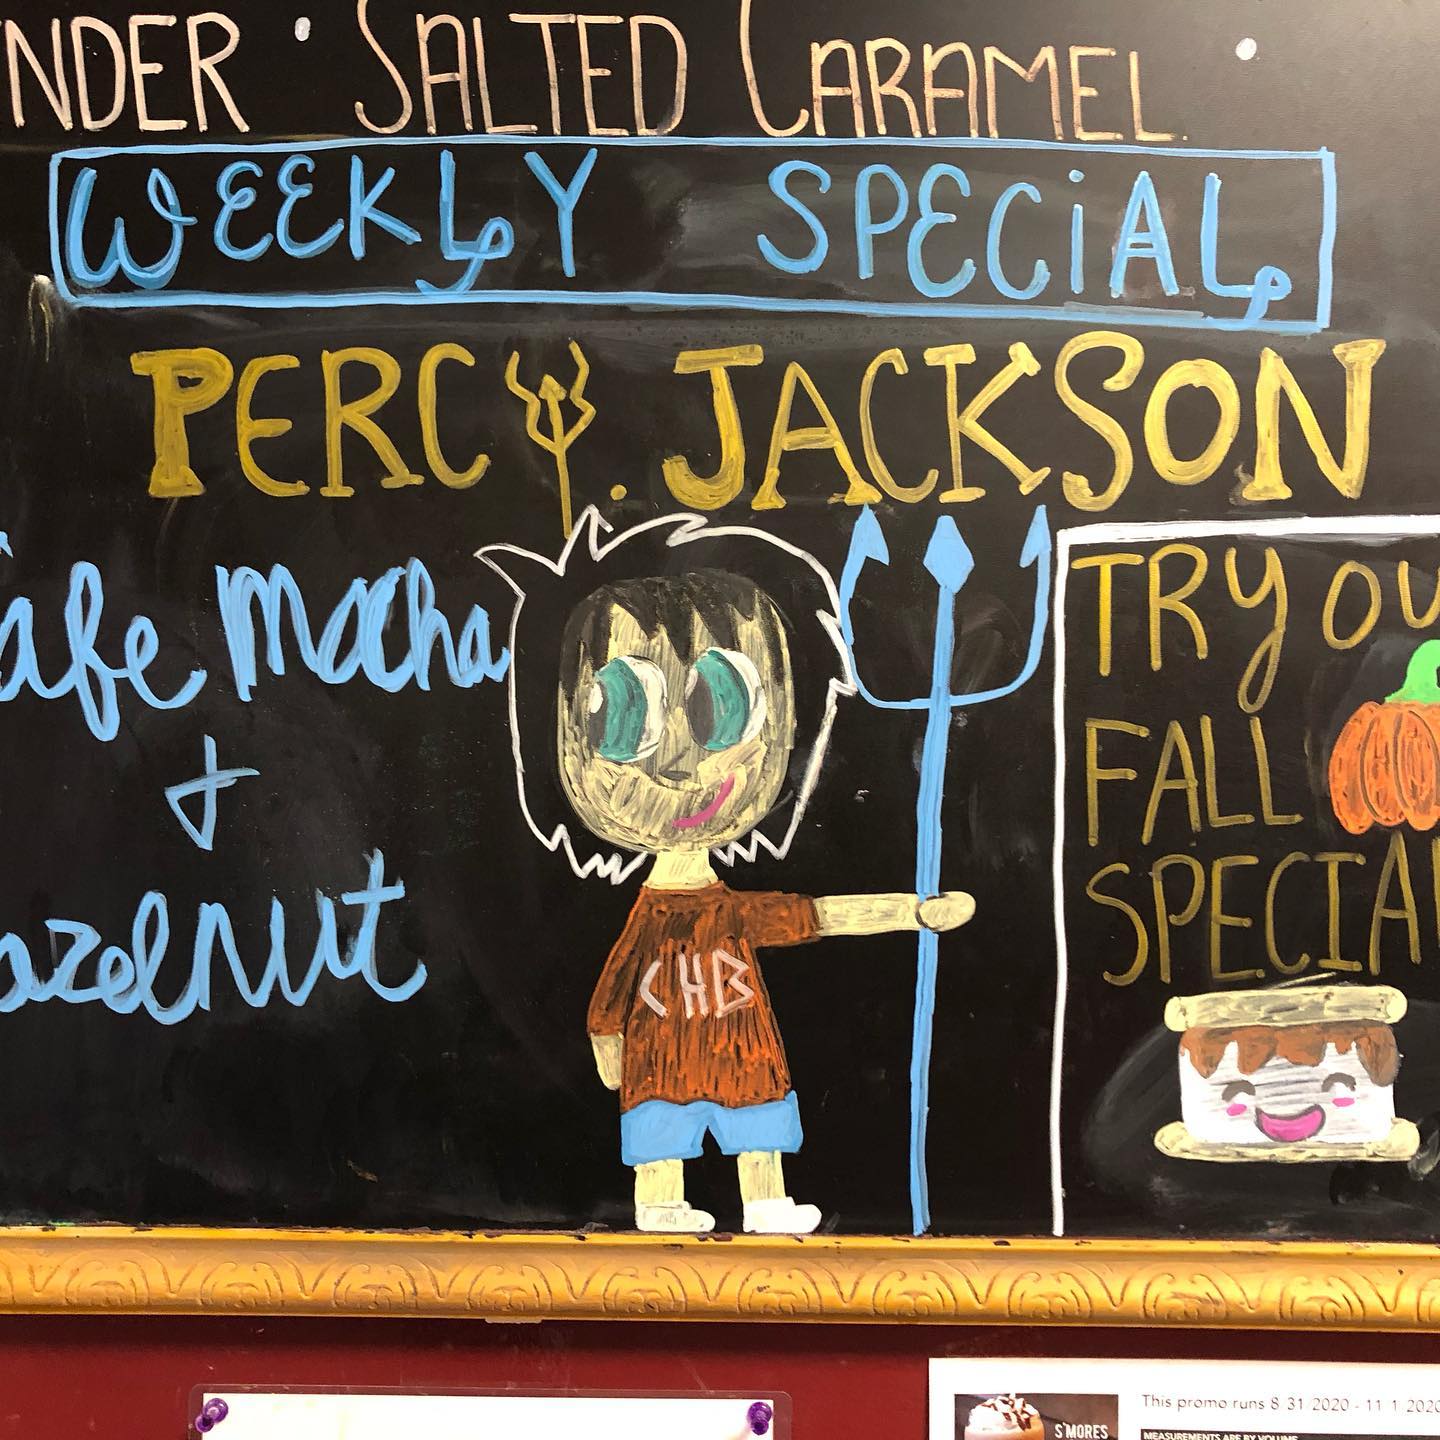 NDER • SALTED CARAMEL •
WEEKLY SPECIAL
PERCY. JACKSON
afe Mocha
+
azelnut
CHB
TRY OU
FALL
SPECIA
This promo runs 8/31/2020 - 11/1/2020
S'MORES
MEASUREMENTS ARE BY VOLUME